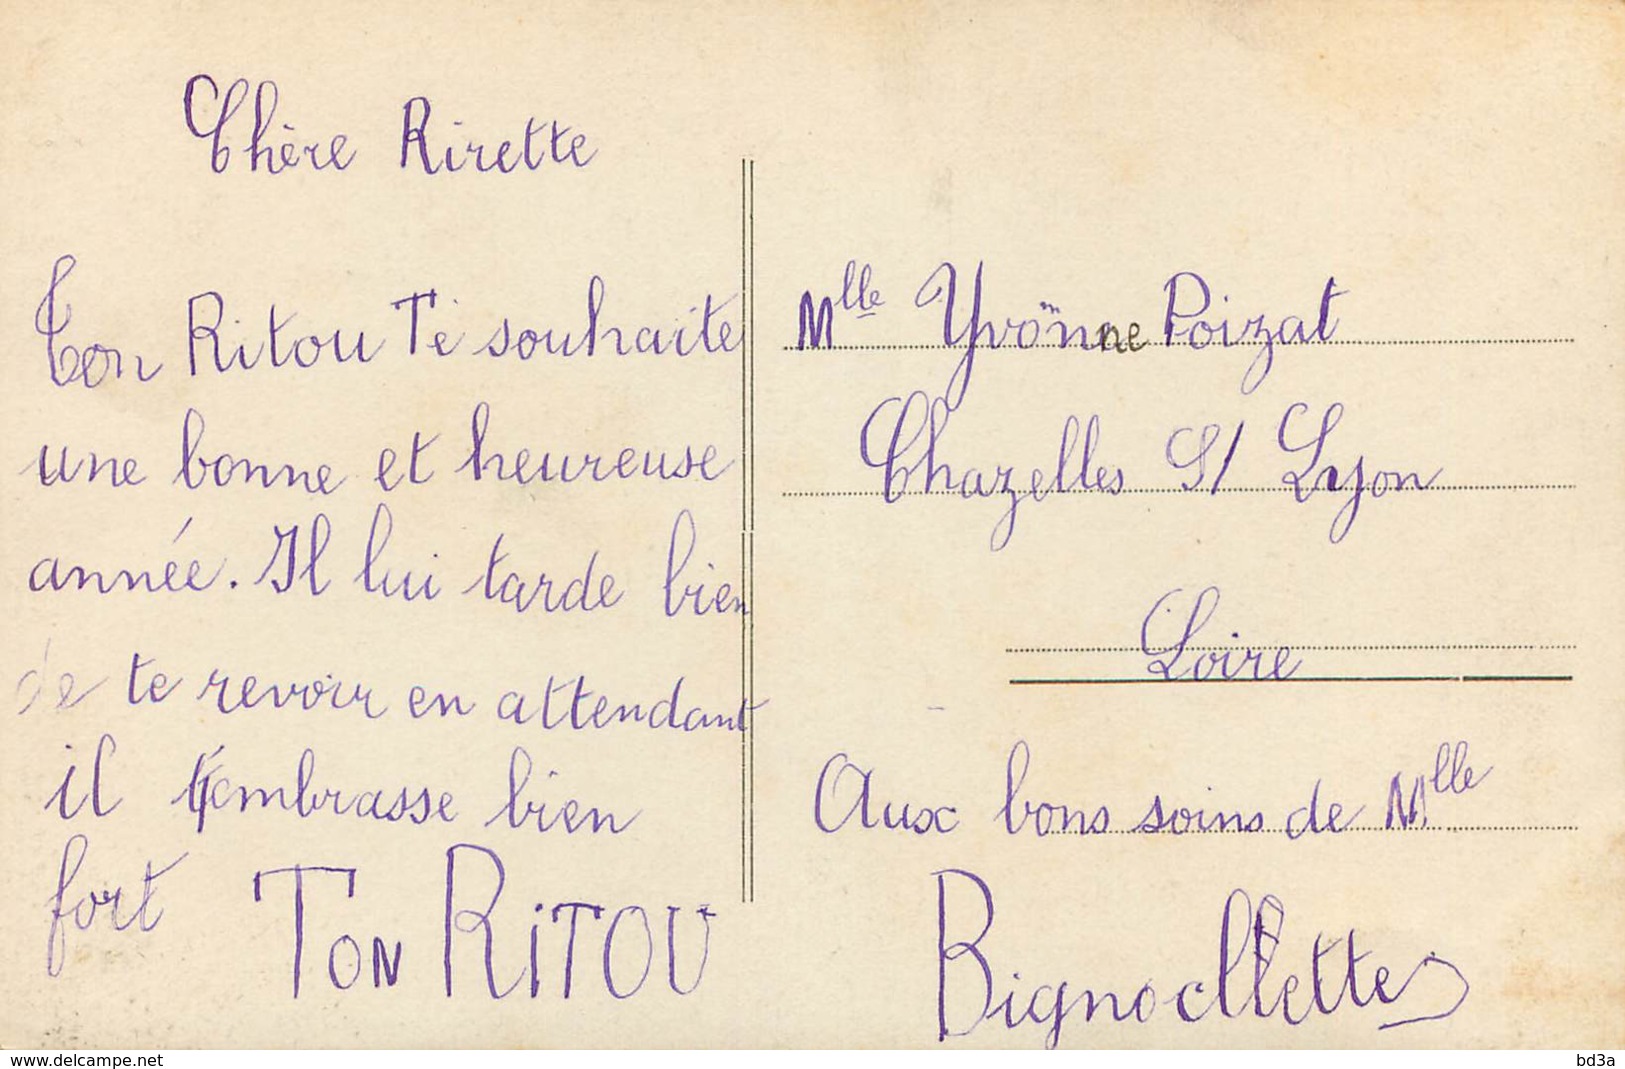 Chère Rirette
Ton Ritou Te souhaite
une bonne et heureuse
année. Il lui tarde bien
de te revoir en attendant
il t'embrasse bien
fort
TON RiTOU
Mlle Yvonne Poizat
Chazelles S/ Lyon
Loire
Aux bons soins de Mlle
delcampe.net
bd3a